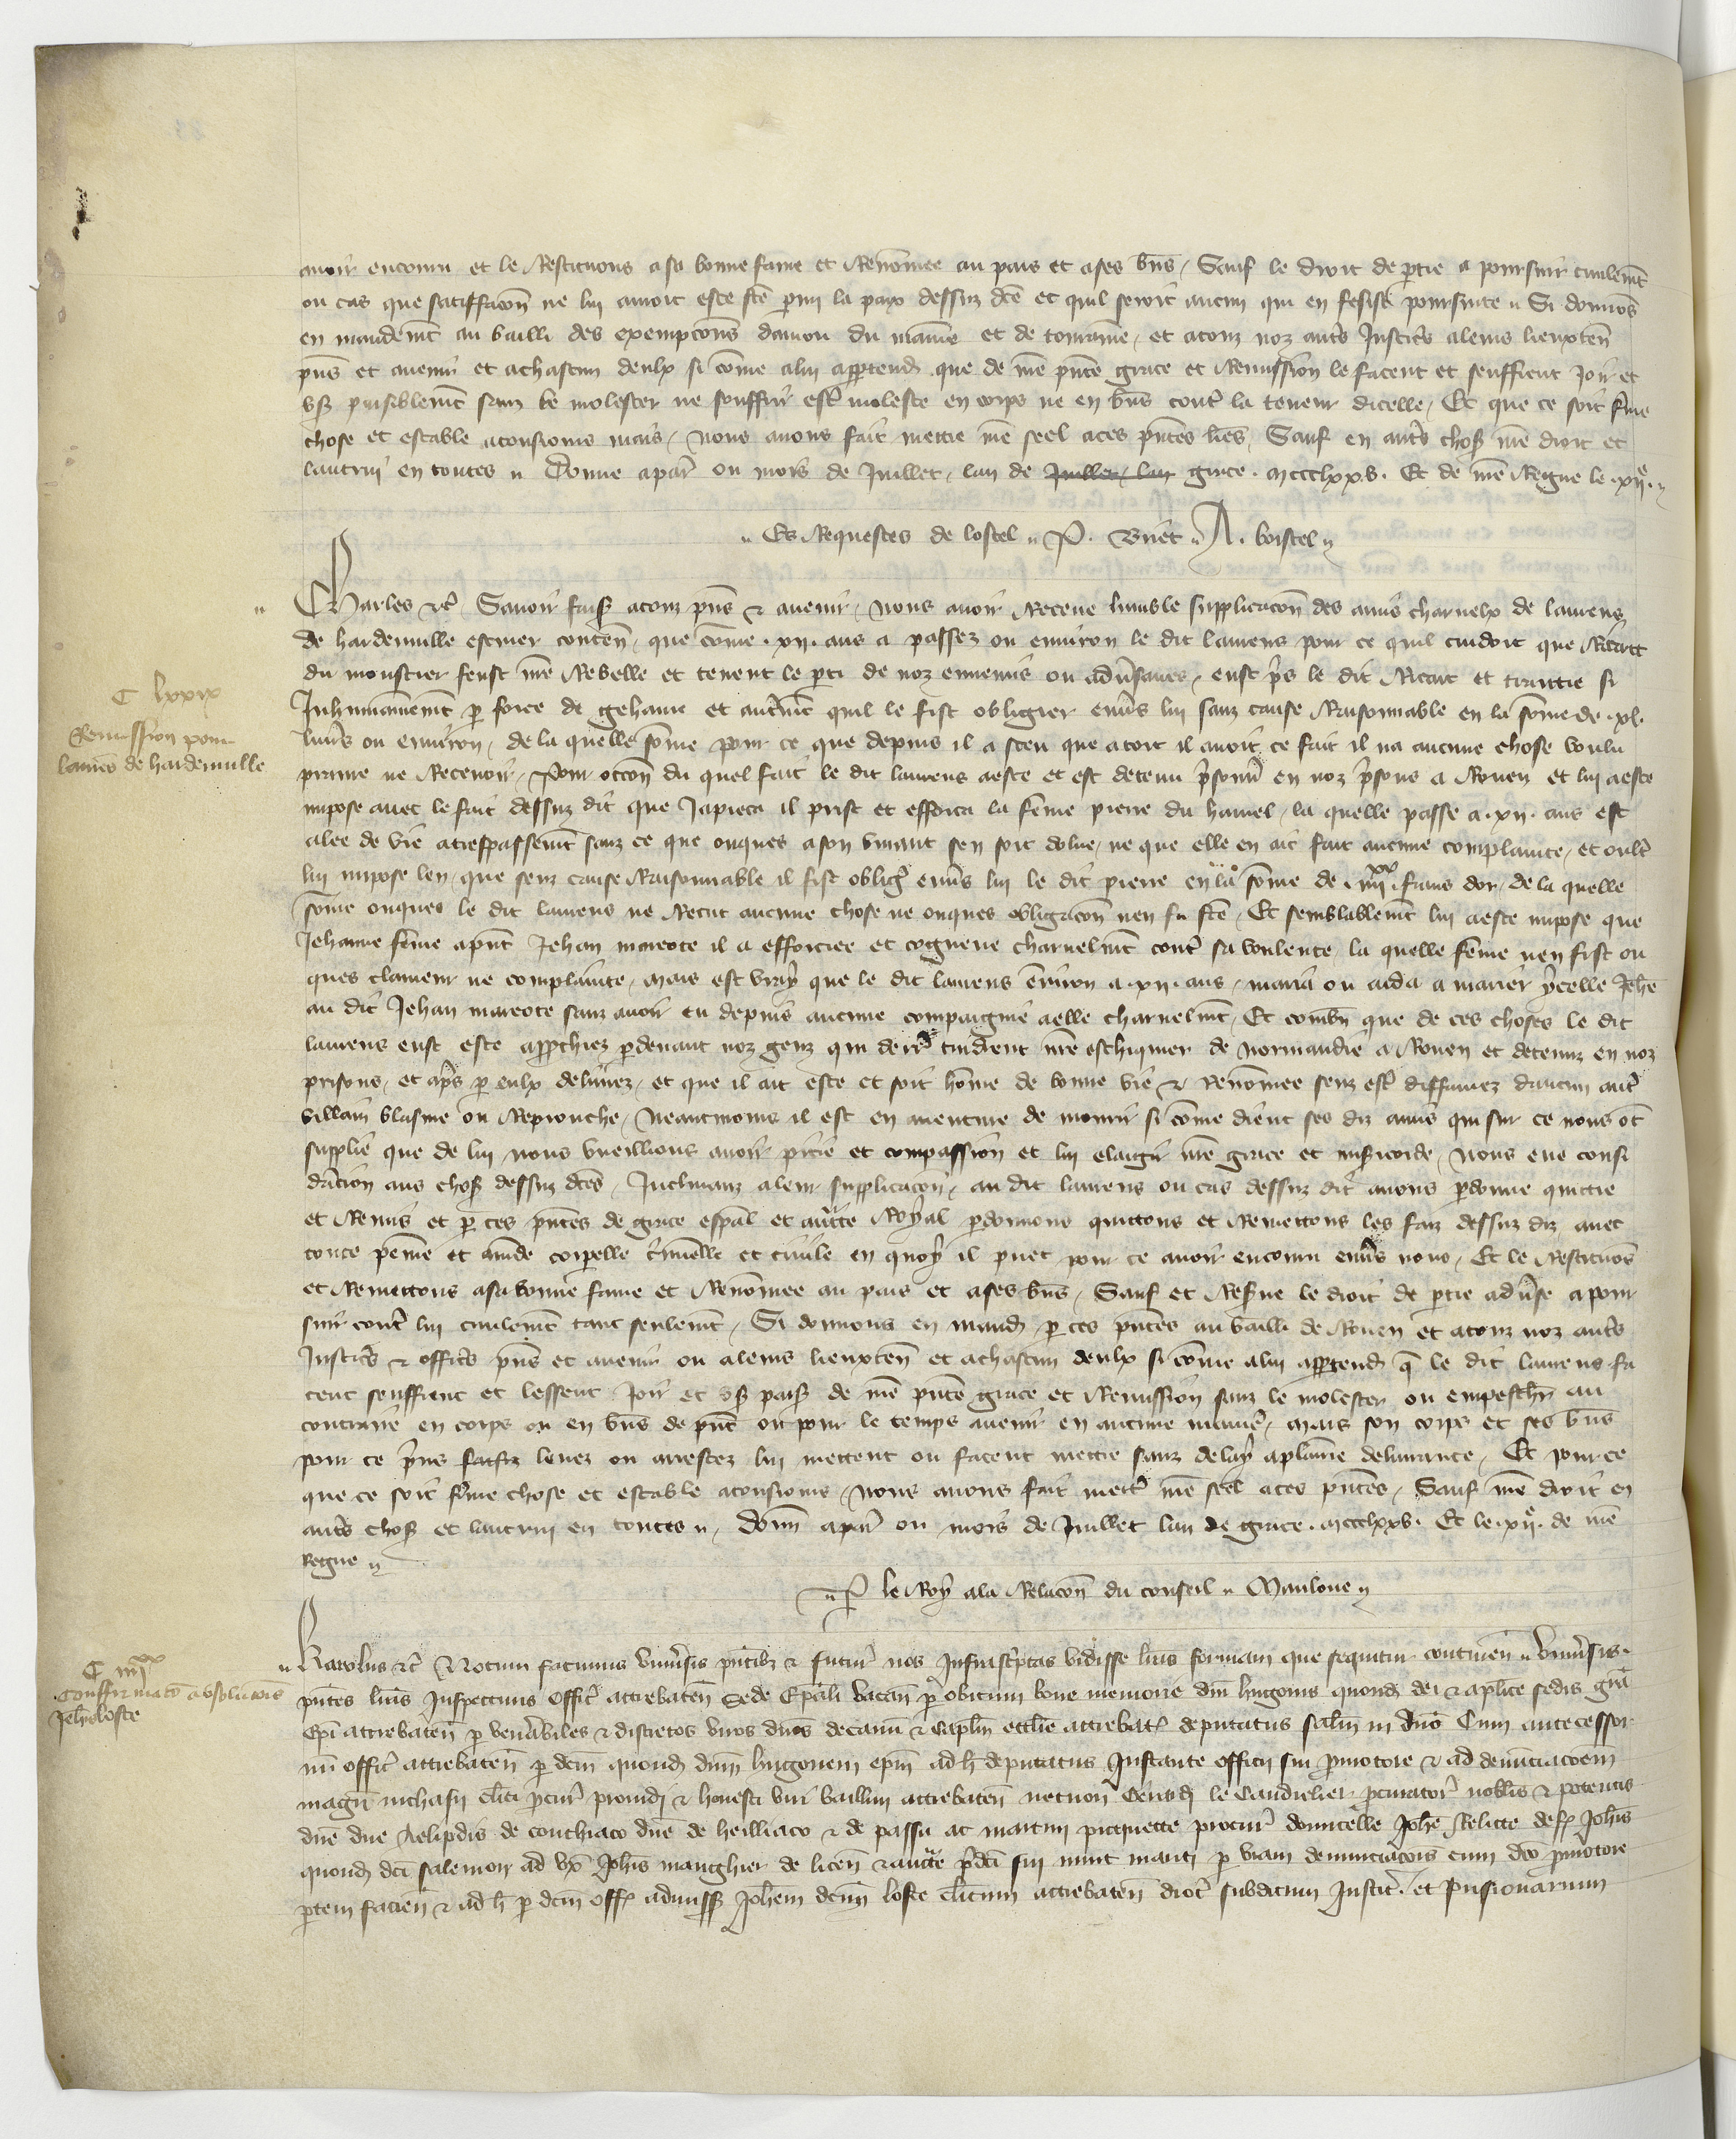 avoir encouru et le Restituons a sa bonne fame et Renōmee au pais et a ses bn̄s / Sauf le droit de ptie a poursuir civilemt̄
ou cas que satiffacōn ne lui auroit este fc̄e pmi la paix dessuz dc̄e et quil seroit aucun qui en feist poursuite Si donnōs
en mandemt̄ au bailli des exempcōns danjou du maine et de touraine / et a touz noz aut̄s Justic̄s a leurs lieuxten̄
pn̄s et avenir et a chascun deulx si cōme a lui appartend̄ que de nr̄e pn̄te grace et Remission le facent et seuffrent joir et
us̄ paisiblemt̄ sanz le molester ne souffrir estr̄ moleste en corps ne en bn̄s contr̄ la teneur dicelle / Et que ce soit fme
chose et estable a tousiours mais / nous avons fait mettre nr̄e seel a ces pn̄tes lr̄es Sauf en aut̄s chos̄ nr̄e droit et
lautrui en toutes Donne a par̄ ou mois de Juillet / lan de Juillet / lan grace mccclxxv Et de nr̄e Regne le xiie
Es Requestes de lostel P. A. boistel
Charles etc̄ Savoir fais̄ a touz pn̄s et avenir / nous avoir Receue lumble supplicacōn des amis charnelx de laurens
de hardenville escuier conten̄ / que cōme xii ans a passez ou environ le dit laurens pour ce quil cuidoit que Ricart
du monstier feust nr̄e Rebelle et tenent le pti de noz ennemis ou advs̄aires / eust pr̄s le dit Ricart et traittie si
Inhumainemt̄ p force de gehaine et autr̄mt̄ quil le fist obligier env̄s lui sanz cause Raisonnable en la sōme de xl
livr̄s ou environ / de la quelle sōme pour ce que depuis il a sceu que a tort il avoit ce fait il na aucune chose voulu
prenre ne Recevoir / pour occōn du quel fait le dit laurens a este et est detenu pr̄sonn̄ en noz pr̄sons a Rouen et lui a este
impose avec le fait dessuz dit que Japieca il prist et efforca la fēme pierre du hamel / la quelle passe a xii ans est
alee de vie a trespassemt̄ sanz ce que onques a son vivant sen soit dolue / ne que elle en ait fait aucune complainte / et oultr̄
lui impose len / que senz cause Raisonnable il fist obliḡ env̄s lui le dit pierre en la sōme de iiiixx frans dor / de la quelle
sōme onques le dit laurens ne Recut aucune chose ne onques obligacōn nen fu fc̄e / Et semblablemt̄ lui a este impose que
Jehanne fēme a pnt̄ Jehan mareote il a efforciee et cogneue charnelmt̄ contr̄ sa voulente la quelle fēme nen fist on
ques clameur ne complainte / mais est vray que le dit laurens ēviron a xii ans / maria ou aida a marier ycelle Jehn̄e
au dit Jehan mareote sanz avoir eu depuis aucune compaignie a elle charnelmt̄ / Et combn̄ que de ces choses le dit
laurens eust este approchiez pdevant noz genz qui derr̄ tindrent nr̄e eschiquier de normandie a Rouen et detenuz en noz
prisons / et apr̄s p eulx delivrez / et que il ait este et soit hōme de bonne vie et Renōmee senz estr̄ diffamez daucun autr̄
villain blasme ou Reprouche / Neantmoins il est en aventure de mourir si cōme dient ses diz amis qui sur ce nous ōt
supplie que de lui nous vueillions avoir pitie et compassion et lui elargir nr̄e grace et mis̄icorde / Nous eue consi
dr̄acion aus chos̄ dessuz dc̄es / Inclinanz a leur supplicacōn / au dit laurens ou cas dessuz dit avons pdonne quittie
et Remis et p ces pn̄tes de grace esp̄al et auct̄te Royal pdonnons quittons et Remettons les faiz dessuz diz avec
toute peinne et amēde corpelle cr̄minelle et civile en quoy il puet pour ce avoir encouru env̄s nous / Et le Restituōs
et Remettons a sa bonne fame et Renōmee au pais et a ses bn̄s / Sauf et Res̄ve le droit de ptie adv̄se a pour
suir contr̄ lui civilemt̄ tant seulemt̄ / Si donnons en mand̄ p ces pn̄tes au bailli de Rouen et a touz noz aut̄s
Justic̄s et offic̄s pn̄s et avenir ou a leurs lieuxten̄ et a chascun deulx si cōme a lui apptend̄ q̄ le dit laurens fa
cent seuffrent et lessent joir et us̄ pais̄ de nr̄e pn̄te grace et Remission sanz le molester ou empesch̄ au
contraire en corps ou en bn̄s de pnt̄ ou pour le temps avenir en aucune manie̅r / mais son corps et ses bn̄s
pour ce pr̄ns saisiz levez ou arrestez lui mettent ou facent mettre sanz delay a plaine delivrance / Et pour ce
que ce soit fme chose et estable a tousiours / Nous avons fait mettr̄ nr̄e seel a ces pn̄tes / Sauf nr̄e droit en
aut̄s chos̄ et lautrui en toutes / Donn̄ a par̄ ou mois de Juillet lan de grace mccclxxv Et le xiie de nr̄e
Regne
P le Roy a la Relacōn du conseil Mauloue
Karolus etc̄ Notum facimus univs̄is pn̄tibz et futur̄ nos Infrascr̄ptas vidisse lr̄as formam que sequitur continen̄ Univs̄is
pn̄tes lr̄as Inspecturis Offic̄ attrebaten̄ Sede Ep̄ali vacan̄ p obitum bone memorie dn̄i hugonis quond̄ dei et ap̄lice sedis gr̄a
Ep̄i attrebaten̄ p ven̄abiles et discretos viros dn̄os decanū et Capl̄m eccl̄ie attrebat̄ deputatus sal̄m in dn̄o Cum antecessor
nr̄ offic̄ attrebaten̄ p dc̄m quond̄ dn̄m hugonem ep̄m ad h̄ deputatus Instante officii sui pmotore et ad denūciacoem̄
magr̄i michaelis cl̄ici pcur̄ providi et honesti viri baillivi attrebaten̄ necnon̄ Gerard̄ le Candrelier pcurator̄ nobilis et potentis
dn̄e dn̄e Aelipdis de conchiaco dn̄e de heilliaco et de passu ac martini picquette procur̄ domicelle Joh̄e Relicte def̄ Joh̄is
quond̄ dc̄i salemon ad ux̄ Joh̄is mangbier de licen̄ et auct̄te pr̄dc̄i sui nunc mariti p viam denunciac̄ois cum dc̄o pmotore
ptem facien̄ et ad h̄ p dc̄m off̄ admiss̄ Joh̄em dc̄m loste cl̄icum attrebaten̄ dioc̄ subditum Justic̄ et prisionarium
C lxxix
Remission pour
laurēs de hardenville
C iiiixx
Confirmatō absolucōis
Jeh̄ loste